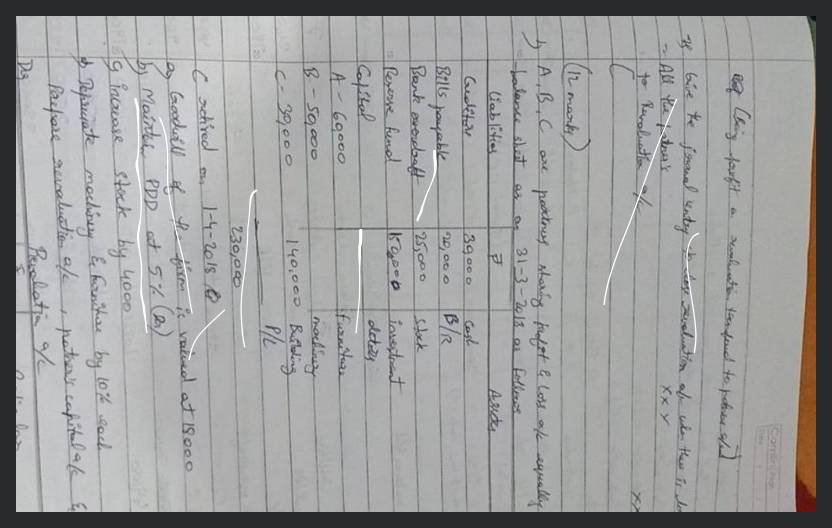 (Being profit on revaluation transferred to partners a/c)
Give the journal entry to close revaluation a/c when there is
- All the partner's xxx
to Revaluation a/c xx
(12 marks)
A, B, C are partners sharing profit & loss a/c equally
balance sheet as on 31-3-2018 as follows
Liabilities ₹ Assets
Creditors 30,000 Cash
Bills payable 20,000 B/R
Bank overdraft 25,000 Stock
Reserve fund 15,000 investment
Capital debtors
A - 60000 furniture
B - 50,000 machinery
C - 30,000 140,000 Building
P/L
230,000
C retired on 1-4-2018
a) Goodwill of the firm is valued at 18000
b) Maintain PDD at 5% (Dr)
c) Increase stock by 4000
d) Depreciate machinery & furniture by 10% each
Prepare revaluation a/c, partner's capital a/c &
Revaluation a/c